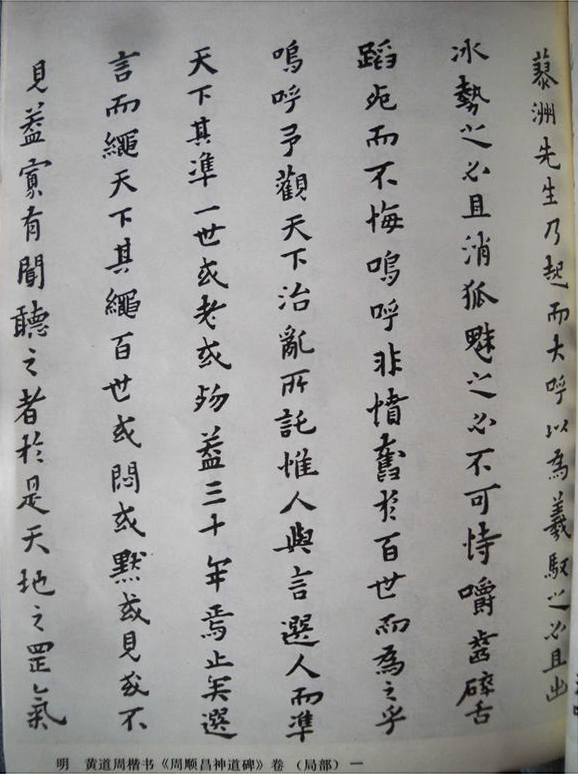 蓼洲先生乃起而大呼以為羲馭之必且出
冰勢之必且消狐魅之必不可恃嚼齒碎舌
蹈死而不悔嗚呼非憤奮於百世而為之乎
嗚呼予觀天下治亂所託惟人與言選人而準
天下其準一世或老或殀蓋三十年焉止矣選
言而繩天下其繩百世或悶或默或見或不
見蓋實有聞聽之者於是天地之罡氣
明 黄道周楷书《周顺昌神道碑》卷（局部）一